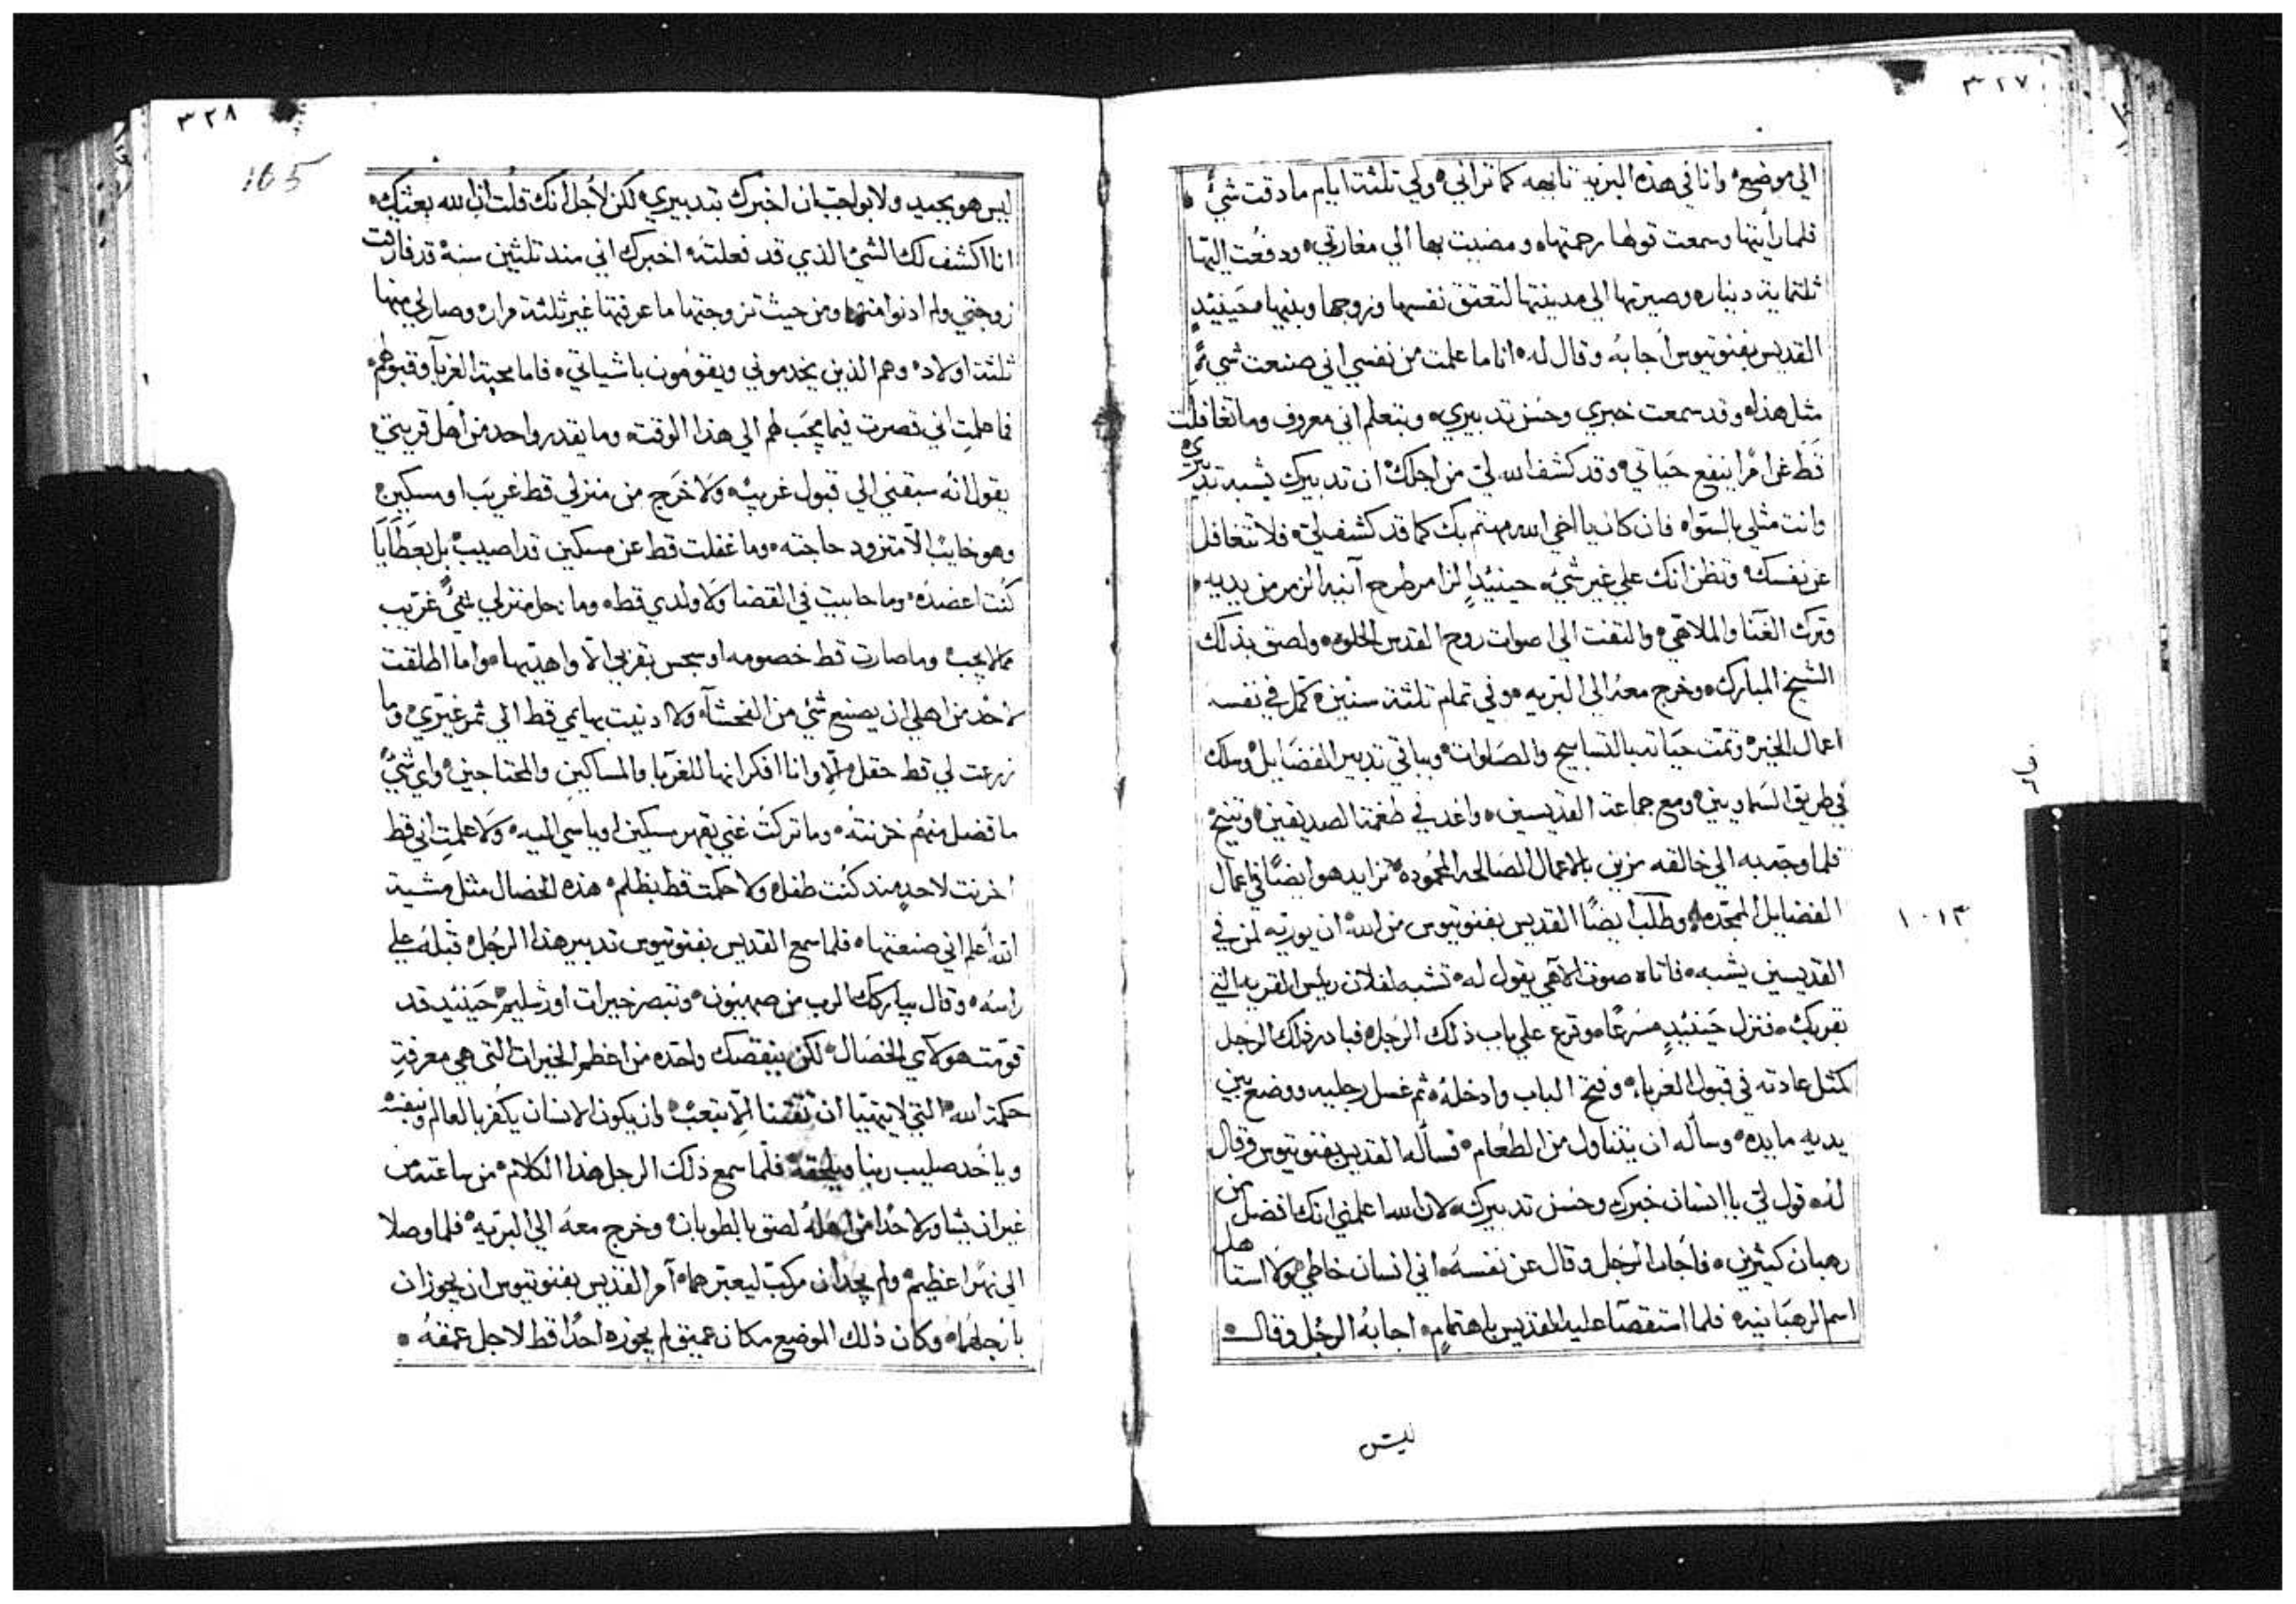 ٣٢٧
الي موضع وانا في هذه البريه تايهه كما تراني ولي تلثة ايام ما دقت شيٌ
فلما رأيتها وسمعت قولها رحمتها ومضيت بها الي مغارتي ودفعت اليها
ثلثماية دينار وصيرتها الي مدينتها لتعتق نفسها وزوجها وبنيها فحينيدٍ
القديس بفنوتيوس أجابه وقال له انا ما علمت من نفسي اني صنعت شيء
مثل هذا وقد سمعت خبري وحسن تدبيري وبتعلم اني معروف وما تغافلت
قط عن امرًا ينفع حياتي وقد كشف الله لي من اجلك ان تدبيرك يشبه تدبيري
وانت مثلي بالسوا فان كان يا اخي الله مهتم بك كما قد كشف لي فلا تتغافل
عن نفسك وتظن انك علي غير شي حينيدٍ الزامر طرح آنية الزمر من يديه
وترك الغنا والملاهي والتفت الي اصوات روح القدس الحلوه ولصق بذلك
الشيخ المبارك وخرج معه الي البريه وفي تمام تلثة سنين كمل في نفسه
اعمال الخير وتمت حياته بالتسابيح والصلوات وبباقي تدبير الفضايل وسلك
في طريق السماويين ومع جماعة القديسين واعد في طغمة الصديقين وتنيح
فلما وجه به الي خالقه مزين بالاعمال الصالحه المحموده تزايد هو ايضًا في اعمال
الفضايل الممجده وطلب ايضًا القديس بفنوتيوس من الله ان يوريه لمن في
١٠١٣
القديسين يشبه فاتاه صوت الاهي يقول له تشبه لفلان ريس القريه التي
بقربك فنزل حينيدٍ مسرعًا وقرع علي باب ذلك الرجل فبادر ذلك الرجل
كمثل عادته في قبول الغربا وفتح الباب وادخله ثم غسل رجليه ووضع بين
يديه مايده وسأله ان يتناول من الطعام فسأله القديس بفنوتيوس وقال
له قول لي يا انسان خبرك وحسن تدبيرك لان الله اعلمني انك افضل من
رهبان كثيرين فاجاب الرجل وقال عن نفسه اني انسان خاطي ولا استاهل
اسم الرهبانيه فلما استقصا عليه القديس باهتمامٍ اجابه الرجل وقال
ليس
٣٢٨
165
ليس هو بجيد ولا بواجب ان اخبرك بتدبيري لكن لأجل انك قلت ان الله بعثك
انا اكشف لك الشي الذي قد فعلته اخبرك اني مند تلثين سنة قد فارقت
زوجتي ولم ادنوا منها ومن حيث تزوجتها ما عرفتها غير تلثة مرار وصار لي منها
ثلثة اولاد وهم الذين يخدموني ويقومون باشياتي فاما محبة الغربا وقبولهم
فما علمت اني قصرت فيما يجب لهم الي هذا الوقت وما يقدر واحد من اهل قريتي
يقول انه سبقني الي قبول غريب ولا خرج من منزلي قط غريب او مسكين
وهو خايب الا متزود حاجته وما غفلت قط عن مسكين قد اصيب بل بعطايا
كنت اعضده وما حابيت في القضا ولا ولدي قط وما دخل منزلي شيٌ غريب
مما لا يجب وما صارت قط خصومه او سجس بقربي الا واهديتها وما اطلقت
لاحد من اهلي ان يصنع شي من الفحشا ولا ادنيت بهايمي قط الي ثمر غيري وما
زرعت لي قط حقل الا وانا افكر انها للغربا والمساكين والمحتاجين واي شيٌ
ما فضل منهم خزنته وما تركت غني يقهر مسكين او ياسي اليه ولا علمت اني قط
احزنت لاحدٍ مند كنت طفل ولا حكمت قط بظلم هذه الخصال مثل مشية
الله أعلم اني صنعتها فلما سمع القديس بفنوتيوس تدبير هذا الرجل قبله علي
راسه وقال يباركك الرب من صهيون وتبصر خيرات اورشليم حينيد قد
قومت هولآي الخصال لكن ينقصك واحده من اعظم الخيرات التي هي معرفةِ
حكمة الله التي لا يتهيا ان تقتنا الا بتعب وان يكون الانسان يكفر بالعالم وبنفسه
وياخد صليب ربنا ويلحقه فلما سمع ذلك الرجل هذا الكلام من ساعته من
غير ان يشاور لاحدًا من اهله لصق بالطوبان وخرج معه الي البريه فلما وصلا
الي نهرًا عظيم ولم يجدان مركب ليعبر هما آمر القديس بفنوتيوس ان يجوزان
بارجلهما وكان ذلك الموضع مكان عميق لم يجوزه احدًا قط لاجل عمقه